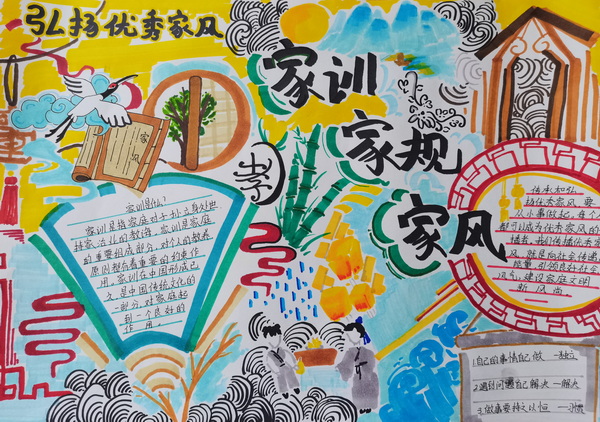 弘扬优秀家风
家训
家规
家风
家风
孝
家训是什么?
家训是指家庭对子孙立身处世
持家治业的教诲。家训是家庭
的重要组成部分,对个人的教养
原则都有着重要的约束作
用。家训在中国形成已
久,是中国传统文化的
一部分,对家庭起
到一个良好的
作用。
传承和弘
扬优秀家风,要
从小事做起,每个人
都可成为优秀家风的
播者,我们传播优秀家
风,就是向社会传递
能量,引领良好社会
风气,建设家庭文明
新风尚
1.自己的事情自己做 —独立
2.遇到问题自己解决 —解决
3.做事要持之以恒 —习惯